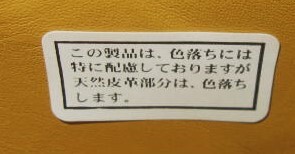 この製品は、色落ちには
特に配慮しておりますが
天然皮革部分は、色落ち
します。